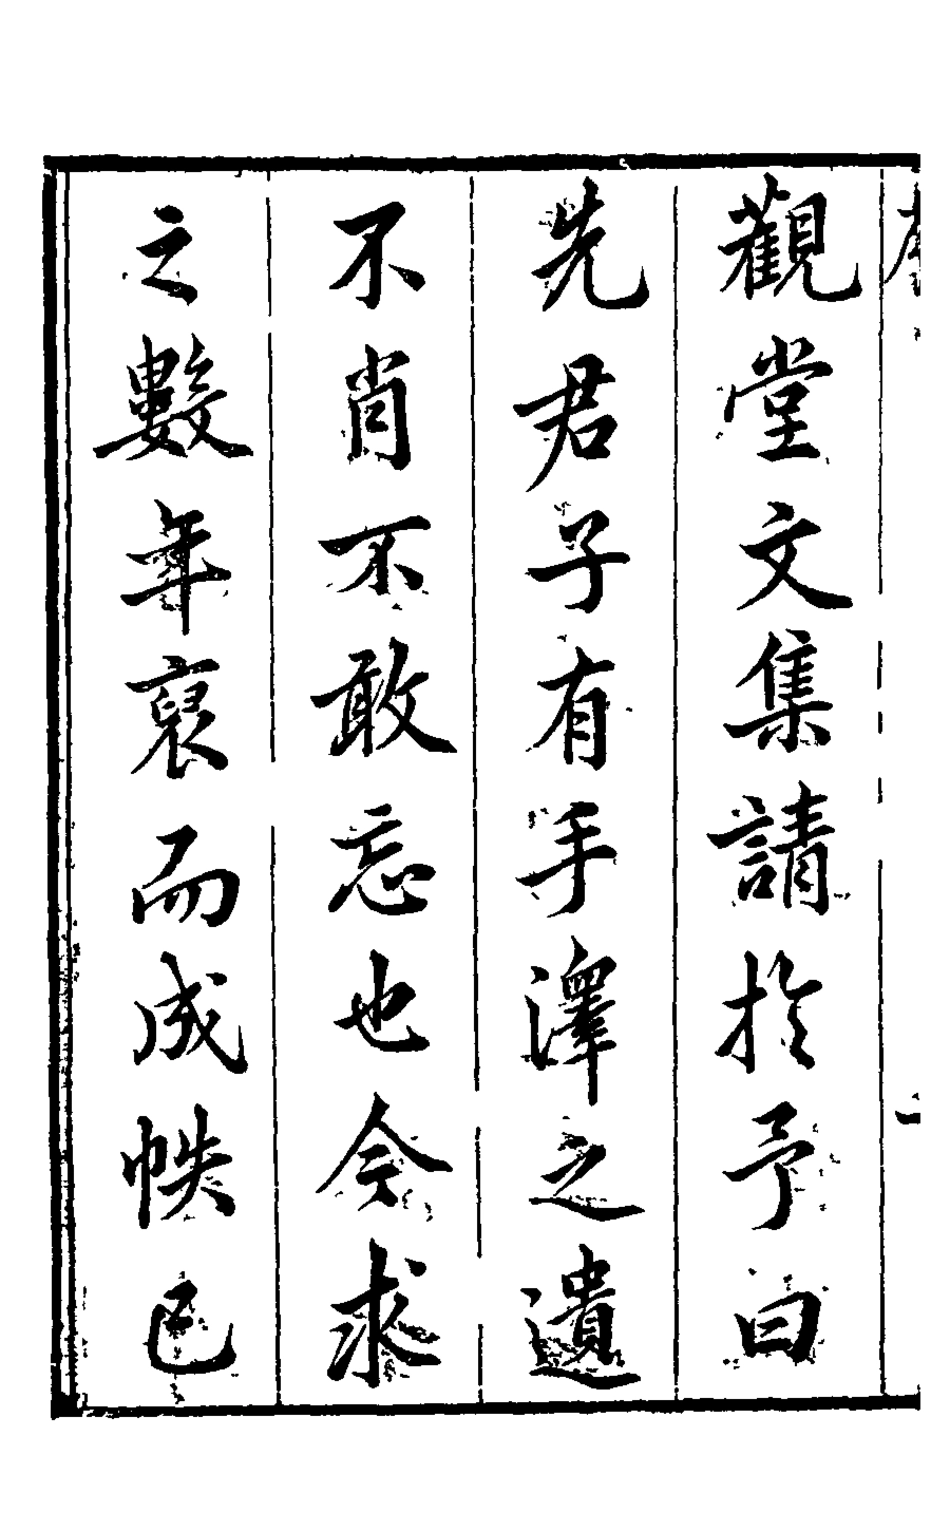 觀堂文集請於予曰
先君子有手澤之遺
不肖不敢忘也今求
之數年裒而成帙已